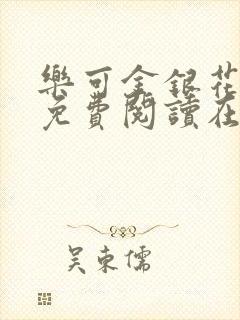 樂可金銀花
免費閱讀在
吴東儒